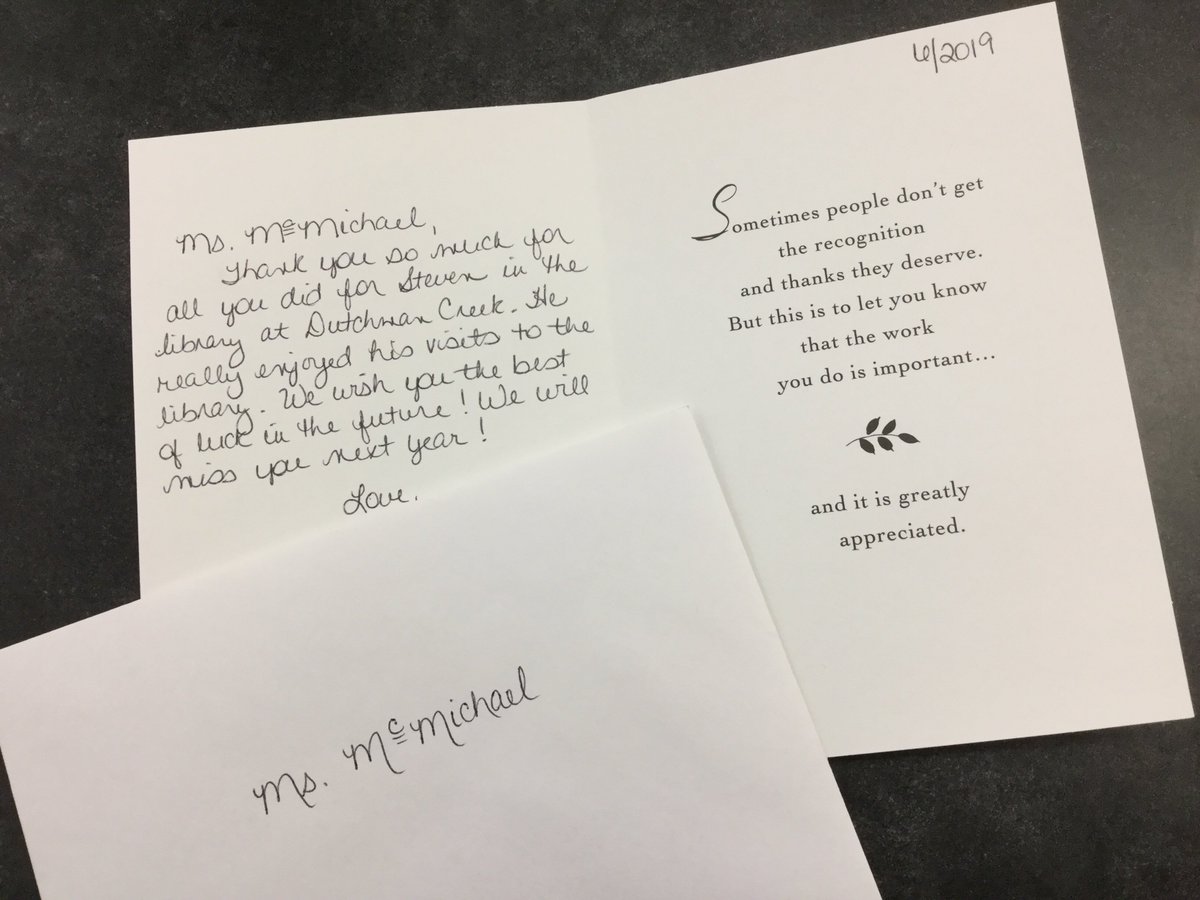 Ms. McMichael,
Thank you so much for
all you did for Steven in the
library at Dutchman Creek. He
really enjoyed his visits to the
library. We wish you the best
of luck in the future! We will
miss you next year!
Love,
6/2019
Sometimes people don't get
the recognition
and thanks they deserve.
But this is to let you know
that the work
you do is important...
and it is greatly
appreciated.
Ms. McMichael